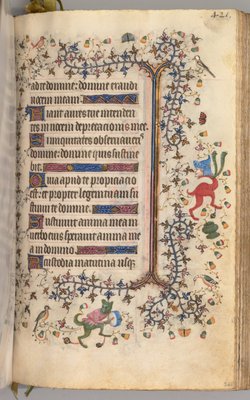 421.
ad te domine: domine exaudi
uocem meam.
Fiant aures tue intenden
tes in uocem deprecacionis mee.
Si iniquitates obseruaueris
domine: domine quis sustine
bit.
Quia apud te propiciacio
est: et propter legem tuam su
stinui te domine.
Sustinuit anima mea in
uerbo eius: sperauit anima me
a in domino.
A custodia matutina usq